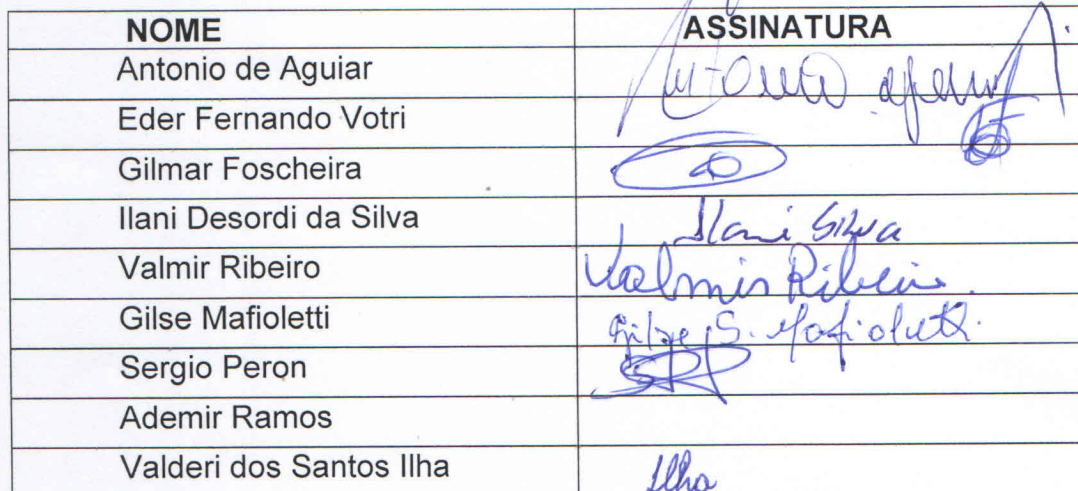 NOME ASSINATURA
Antonio de Aguiar Antonio Aguiar
Eder Fernando Votri
Gilmar Foscheira
Ilani Desordi da Silva Ilani Silva
Valmir Ribeiro Valmir Ribeiro.
Gilse Mafioletti Gilse S. Mafioletti.
Sergio Peron
Ademir Ramos
Valderi dos Santos Ilha Ilha